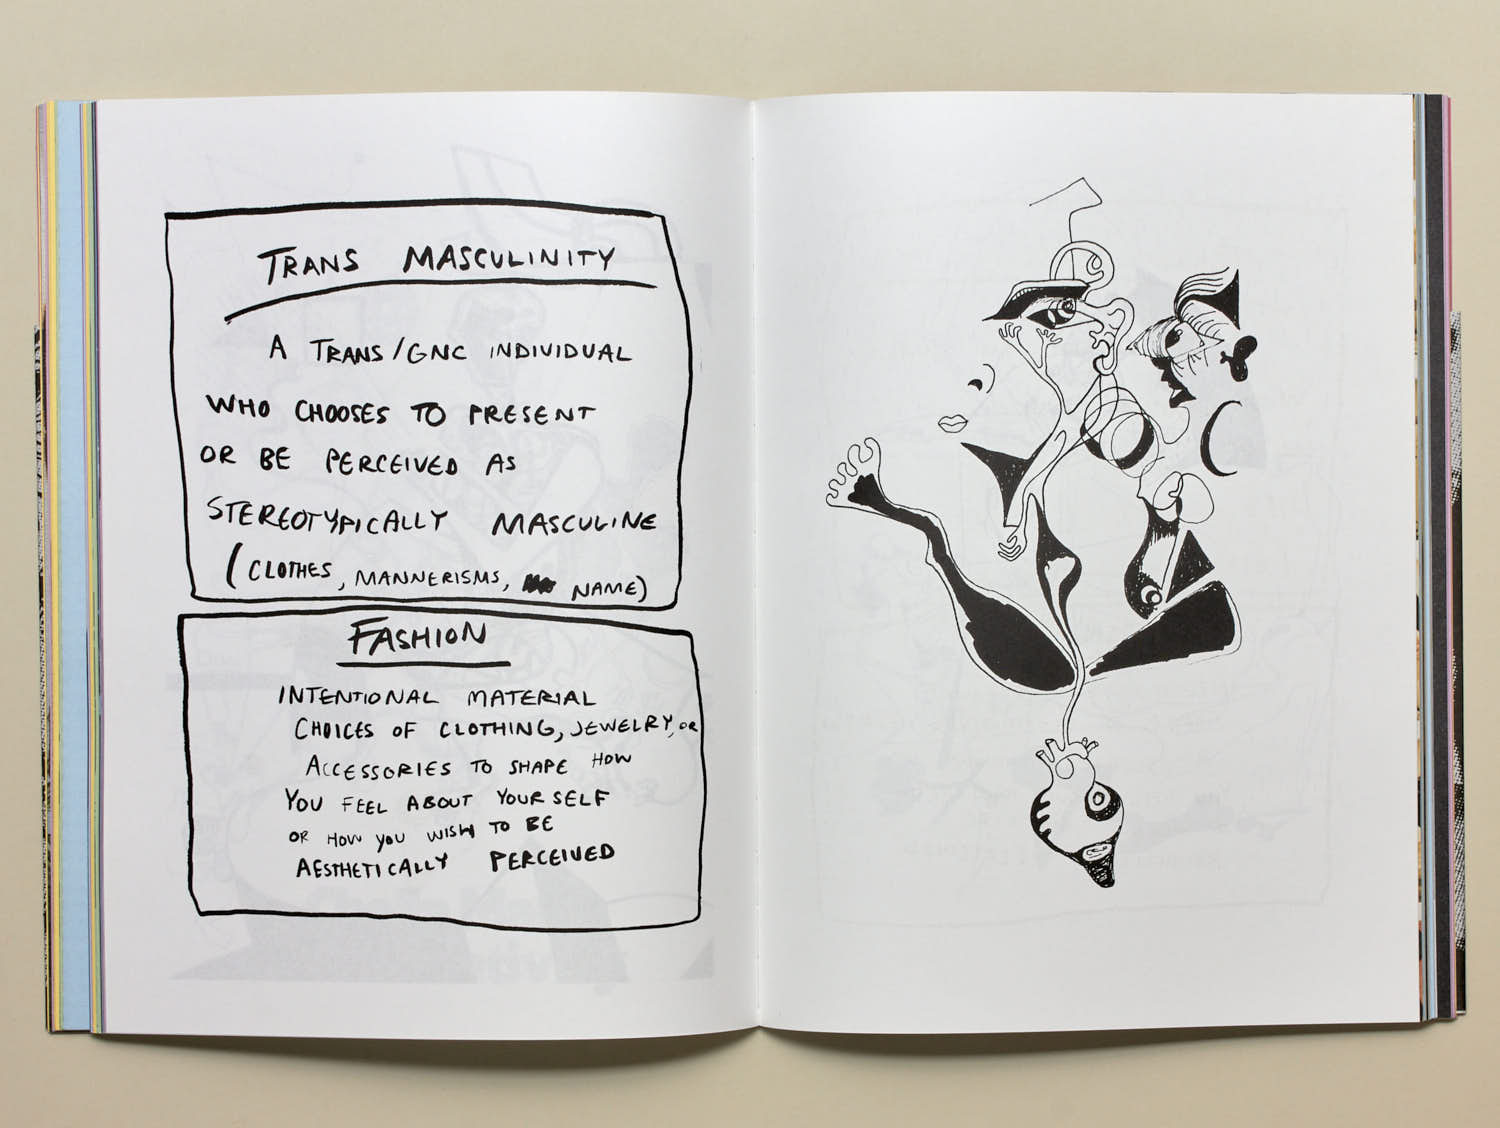 TRANS MASCULINITY
A TRANS/GNC INDIVIDUAL
WHO CHOOSES TO PRESENT
OR BE PERCEIVED AS
STEREOTYPICALLY MASCULINE
(CLOTHES, MANNERISMS, NAME)
FASHION
INTENTIONAL MATERIAL
CHOICES OF CLOTHING, JEWELRY, OR
ACCESSORIES TO SHAPE HOW
YOU FEEL ABOUT YOUR SELF
OR HOW YOU WISH TO BE
AESTHETICALLY PERCEIVED